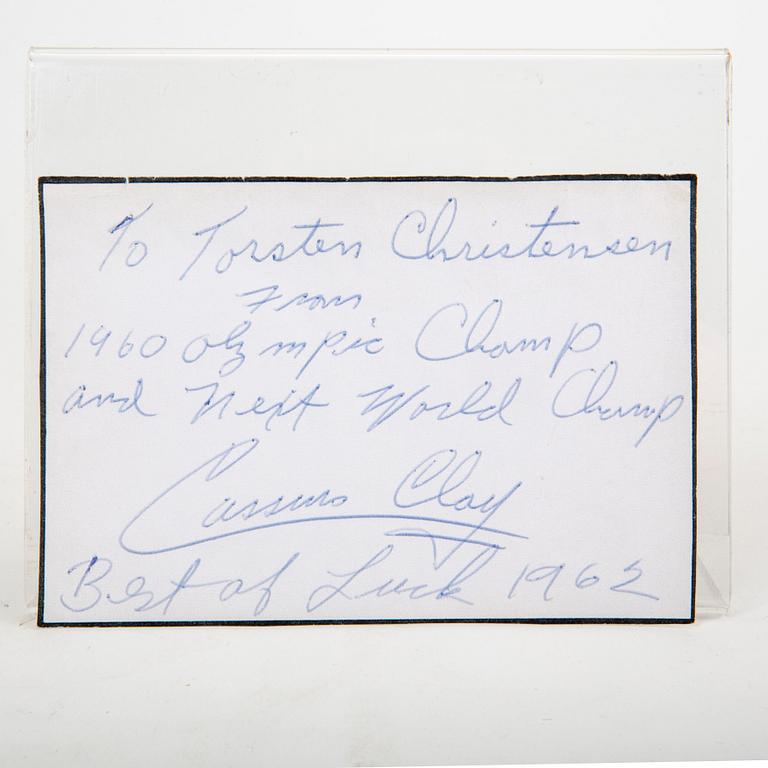 To Torsten Christensen
From
1960 Olympic Champ
and Next World Champ
Cassius Clay
Best of Luck 1962